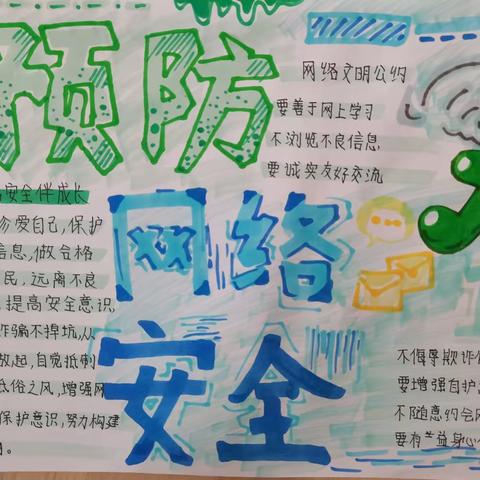 预防
网络文明公约
要善于网上学习
不浏览不良信息
要诚实友好交流
安全伴成长
爱自己,保护
信息,做合格
民,远离不良
提高安全意识
诈骗不掉坑,从
做起,自觉抵制
低俗之风,增强网
保护意识,努力构建
网络
安全
不侮辱欺诈他
要增强自护
不随意约会网
要有益身心